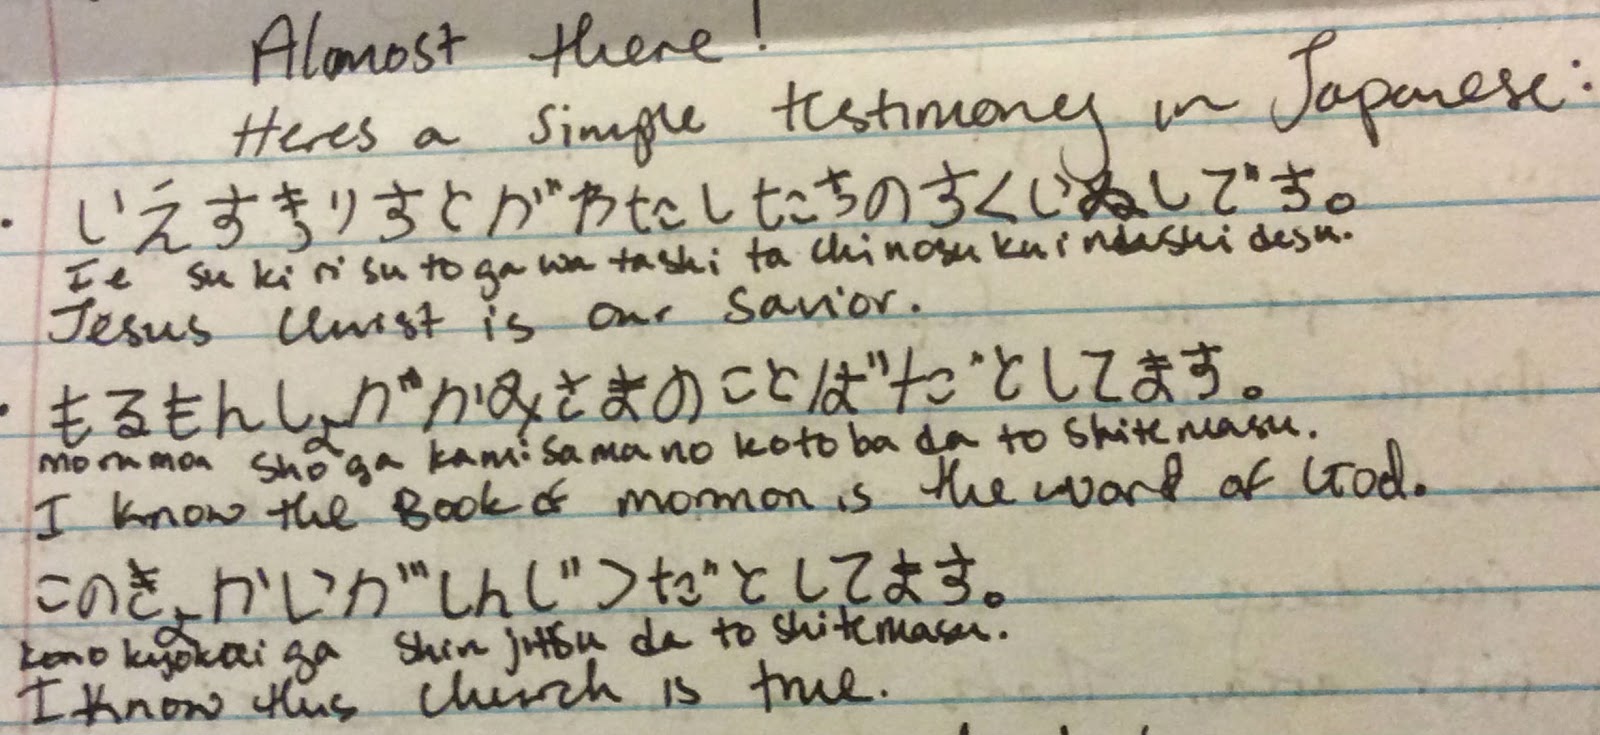 Almost there!
Heres a simple testimony in Japanese:
・いえすきりすとがわたしたちのすくいぬしです。
Ie su ki ri su to ga wa tashi ta chi no su ku i nushi desu.
Jesus Christ is our Savior.
・もるもんしょがかみさまのことばだとしてます。
morumon sho ga kami sama no koto ba da to shitemasu.
I know the Book of mormon is the word of God.
このきょかいがしんじつだとしてます。
kono kyokai ga shin jitsu da to shitemasu.
I know this church is true.